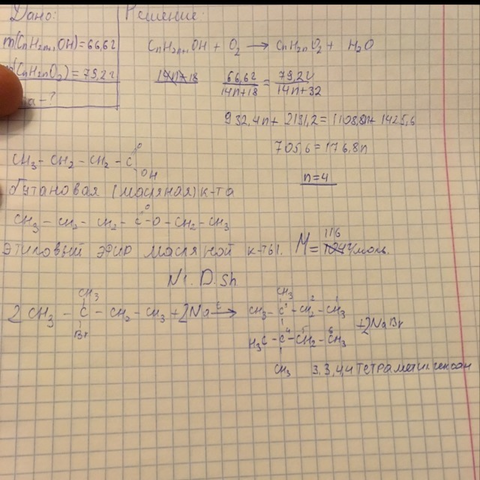 Дано: Решение
m(CnH2n+1OH)=66,6г CnH2n+1OH + O2 → CnH2nO2 + H2O
m(CnH2nO2)=79,2г 66,6г/14n+18 = 79,2г/14n+32
-?
932,4n + 2131,2 = 1108,8n + 1425,6
705,6=176,8n
n=4
CH3-CH2-CH2-C
O
OH
бутановая (масляная) к-та
CH3-CH2-CH2-C-O-CH2-CH3
O
этиловый эфир масляной к-ты. M=116 г/моль.
N1. D.Sh
CH3 CH3
2 CH3-C-CH2-CH3 + 2Na → CH3-C-CH2-CH3 + 2NaBr
Br H3C-C-CH2-CH3
CH3 3,3,4,4 тетраметилгексан